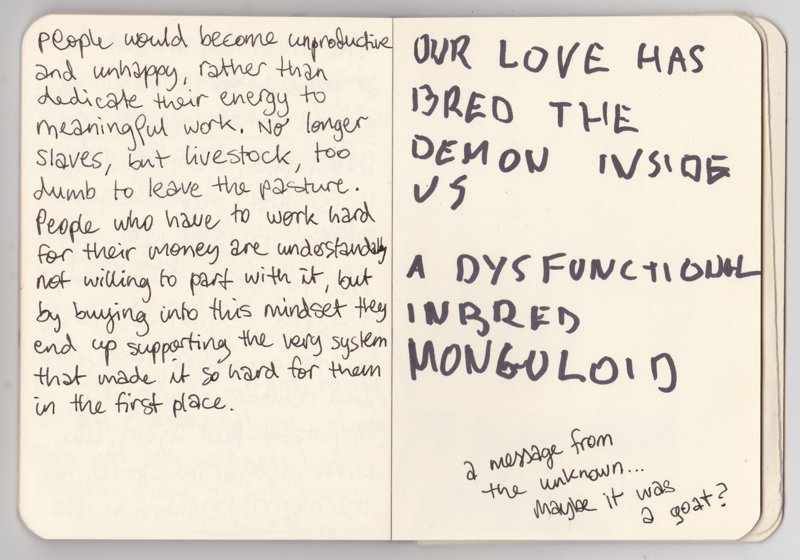 people would become unproductive
and unhappy, rather than
dedicate their energy to
meaningful work. No longer
slaves, but livestock, too
dumb to leave the pasture.
People who have to work hard
for their money are understandably
not willing to part with it, but
by buying into this mindset they
end up supporting the very system
that made it so hard for them
in the first place.
OUR LOVE HAS
BRED THE
DEMON INSIDE
US
A DYSFUNCTIONAL
INBRED
MONGULOID
a message from
the unknown...
maybe it was
a goat?